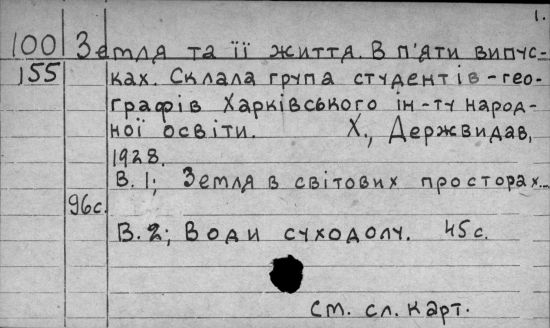 1.
100 Земля та її життя. В п'яти випус-
155 ках. Склала група студентів-гео-
графів Харківського ін-ту народ-
ної освіти. Х., Держвидав,
1928.
В. 1; Земля в світових просторах...
96с.
В. 2; Води суходолу. 45с.
См. сл. карт.